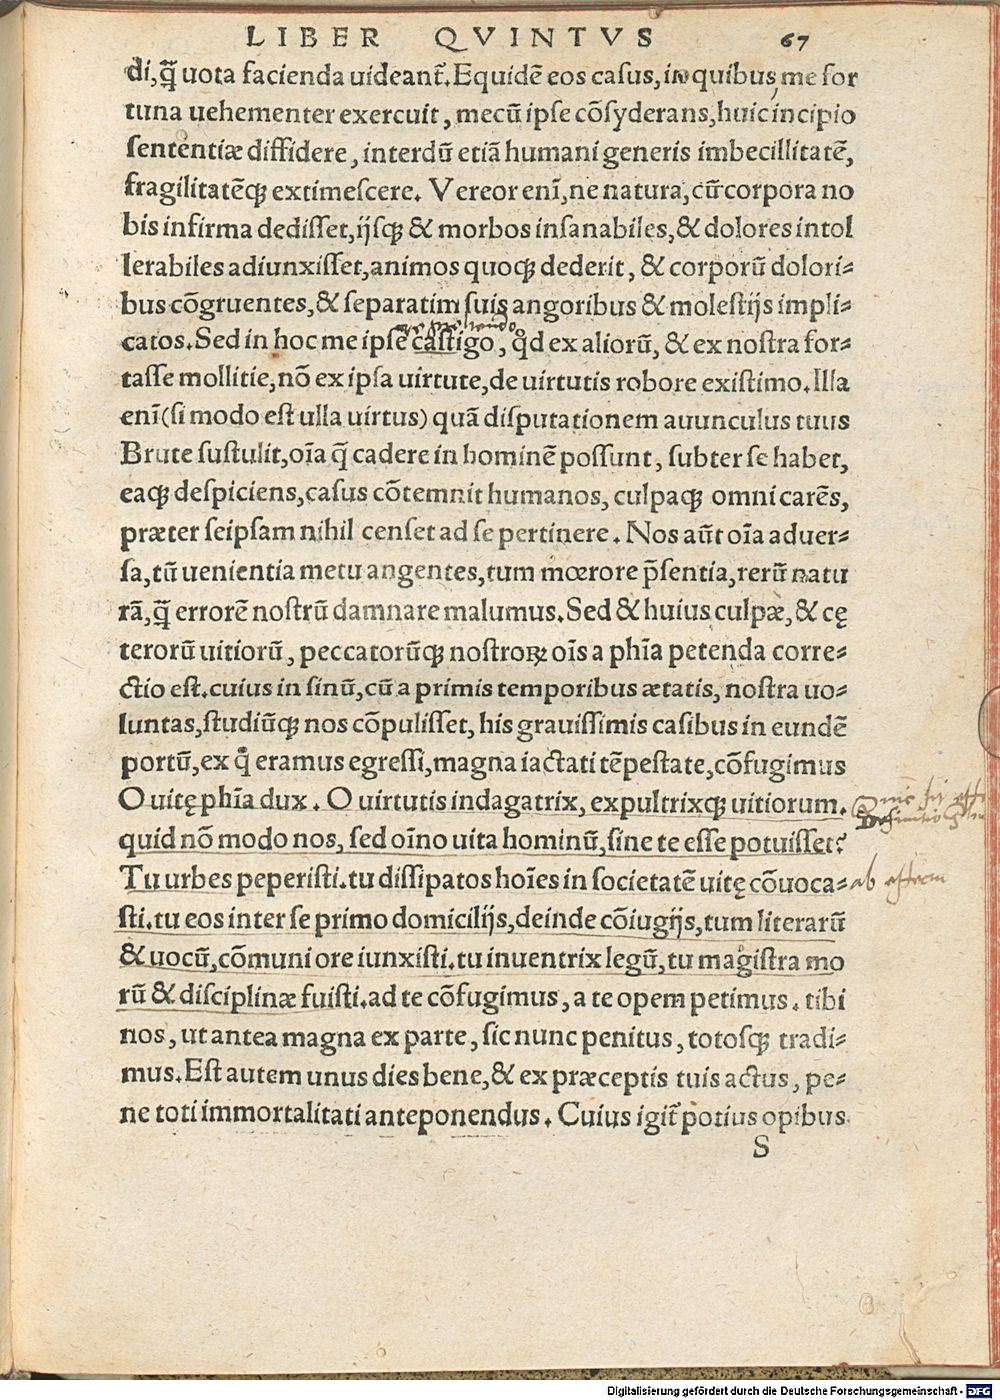 LIBER QVINTVS 67
di, q̃ uota facienda uideant᷑. Equidẽ eos casus, in quibus me for
tuna uehementer exercuit, mecũ ipse cõsyderans, huic incipio
sententiæ diffidere, interdũ etiã humani generis imbecillitatẽ,
fragilitatẽq; extimescere. Vereor enĩ, ne natura, cũ corpora no
bis infirma dedisset, ijsq; & morbos insanabiles, & dolores intol
lerabiles adiunxisset, animos quoq; dederit, & corporũ dolori-
bus cõgruentes, & separatim suis angoribus & molestijs impli-
catos. Sed in hoc me ipse castigo, qd ex aliorũ, & ex nostra for-
tasse mollitie, nõ ex ipsa uirtute, de uirtutis robore existimo. Illa
enĩ (si modo est ulla uirtus) quã disputationem auunculus tuus
Brute sustulit, oĩa q̃ cadere in hominẽ possunt, subter se habet,
eaq; despiciens, casus cõtemnit humanos, culpaq; omni carẽs,
præter seipsam nihil censet ad se pertinere. Nos aũt oĩa aduer-
sa, tũ uenientia metu angentes, tum mœrore p̃sentia, rerũ natu
rã, q̃ errorẽ nostrũ damnare malumus. Sed & huius culpæ, & cę
terorũ uitiorũ, peccatorũq; nostroꝝ oĩs a phĩa petenda corre-
ctio est. cuius in sinũ, cũ a primis temporibus ætatis, nostra uo-
luntas, studiũq; nos cõpulisset, his grauissimis casibus in eundẽ
portũ, ex q̊ eramus egressi, magna iactati tẽpestate, cõfugimus
O uitę phĩa dux. O uirtutis indagatrix, expultrixq; uitiorum.
quid nõ modo nos, sed oĩno uita hominũ, sine te esse potuisset?
Tu urbes peperisti. tu dissipatos hoĩes in societatẽ uitę cõuoca-
ab effectu
sti. tu eos inter se primo domicilijs, deinde cõiugijs, tum literarũ
& uocũ, cõmuni ore iunxisti. tu inuentrix legũ, tu magistra mo
rũ & disciplinæ fuisti. ad te cõfugimus, a te opem petimus. tibi
nos, ut antea magna ex parte, sic nunc penitus, totosq; tradi-
mus. Est autem unus dies bene, & ex præceptis tuis actus, pe-
ne toti immortalitati anteponendus. Cuius igit᷑ potius opibus
S
Digitalisierung gefördert durch die Deutsche Forschungsgemeinschaft - DFG